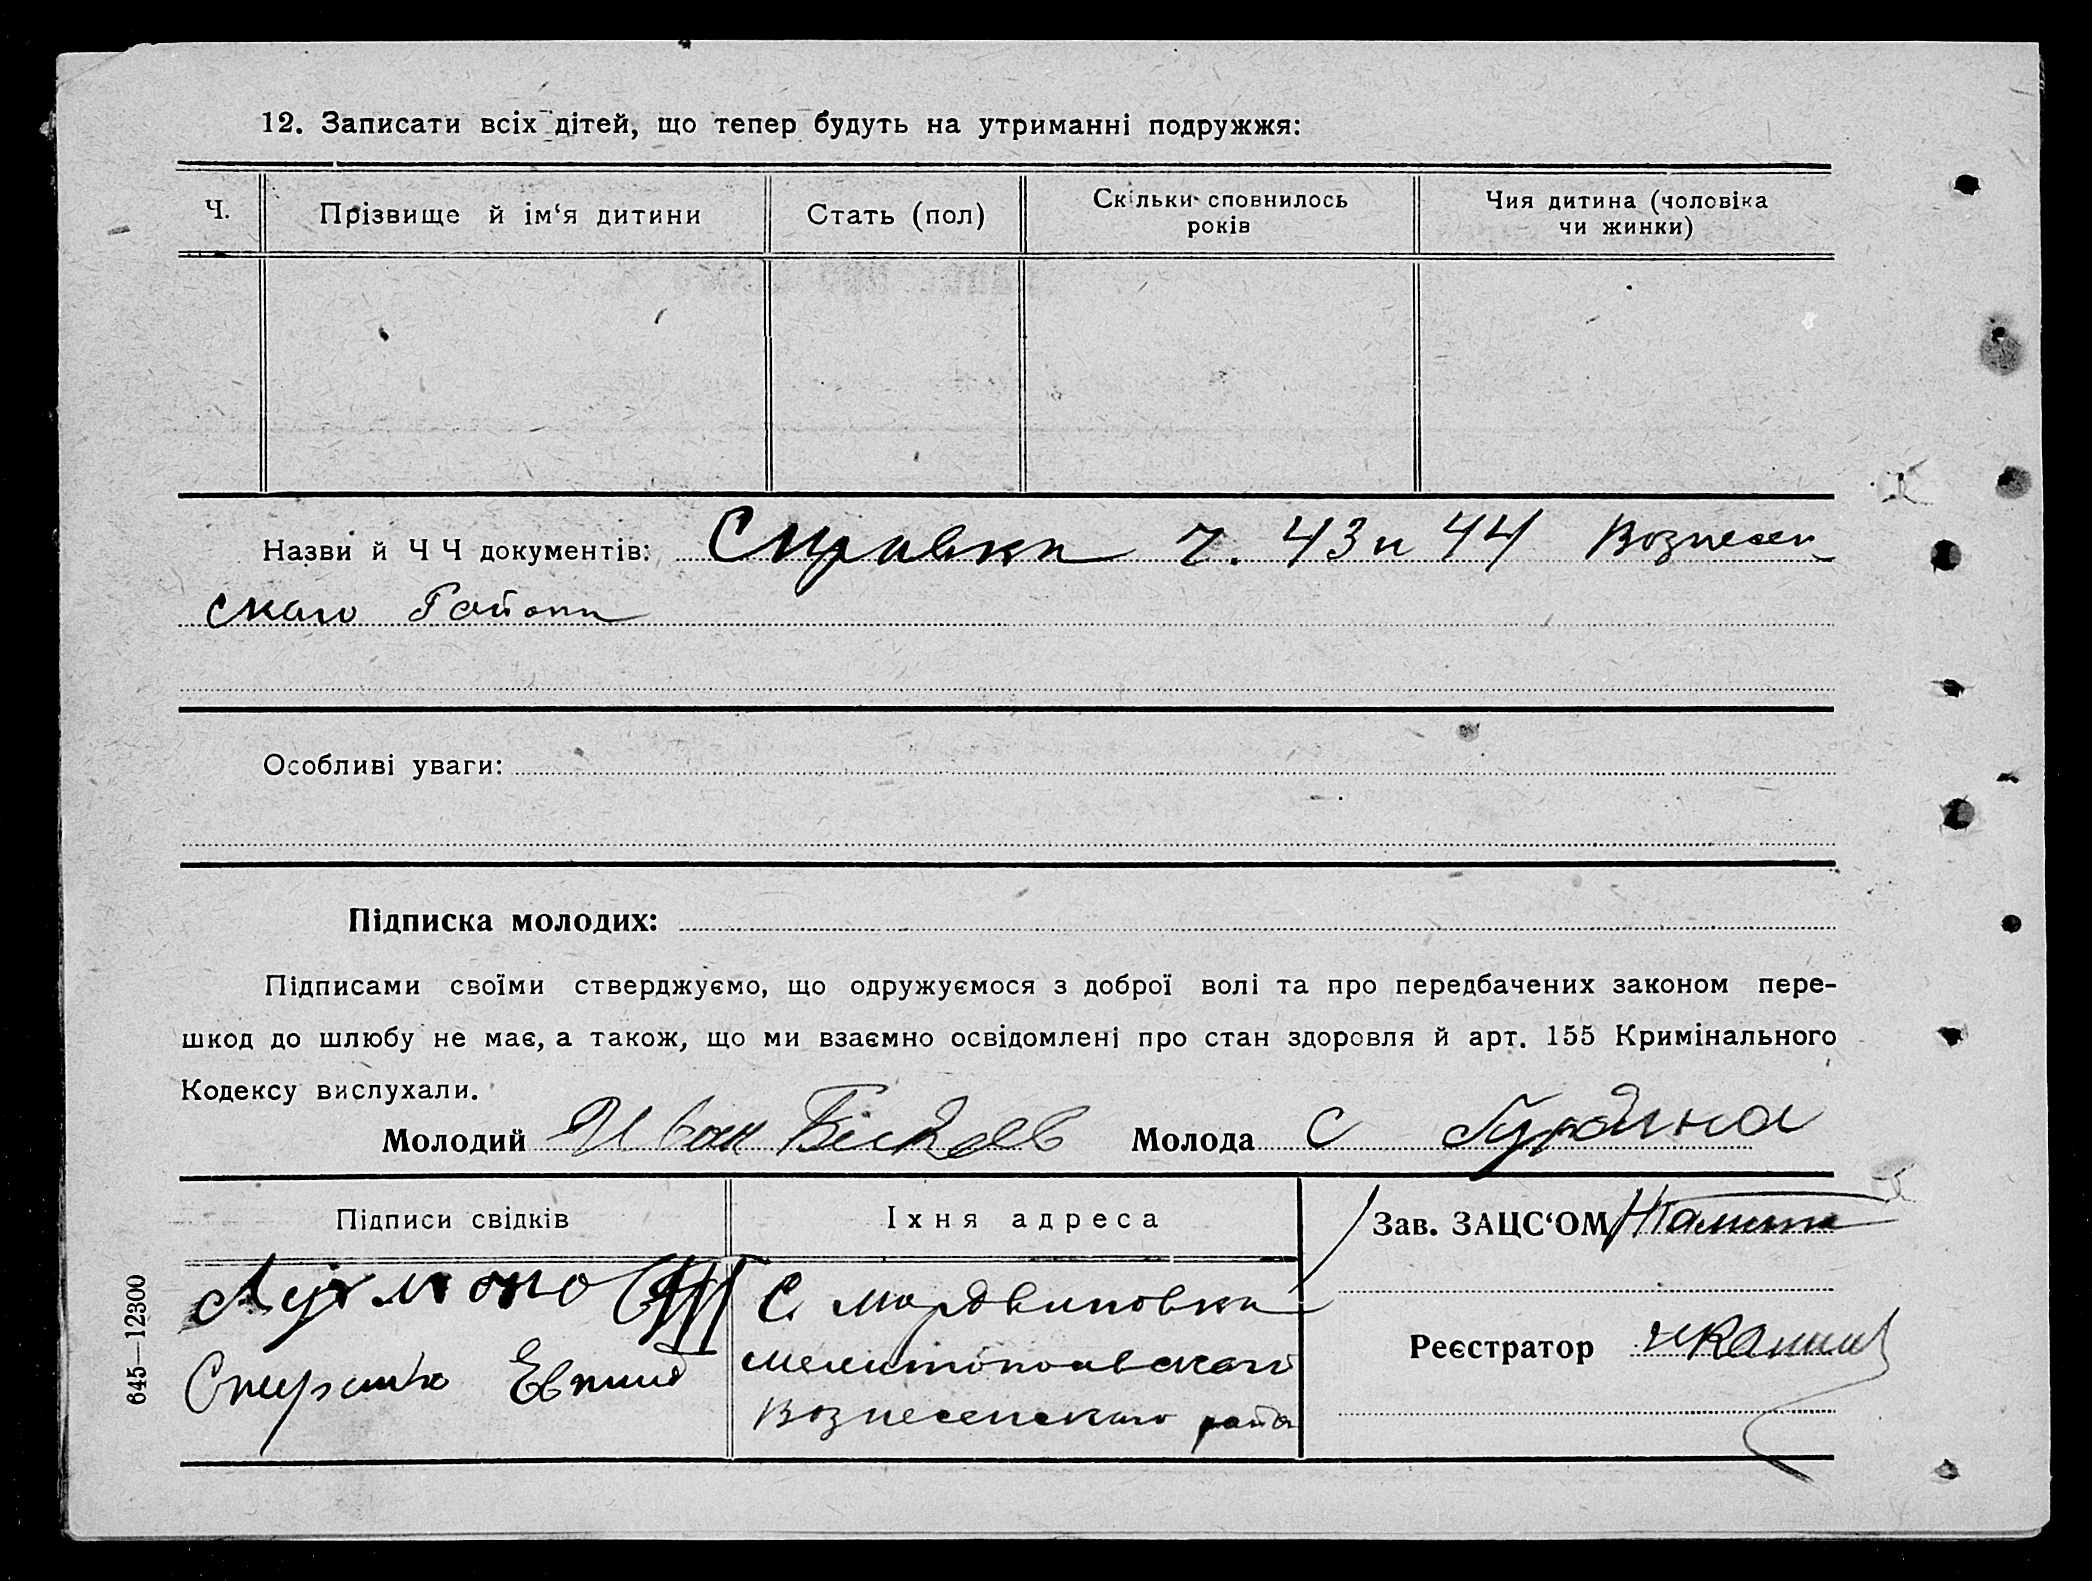 12. Записати всіх дітей, що тепер будуть на утриманні подружжя:
Ч.
Прізвище й ім‘я дитини
Стать (пол)
Скільки сповнилось
років
Чия дитина (чоловіка
чи жинки)
Назви й Ч Ч документів: Справка ч. 43 и 44 Вознесен
скаго Района
Особливі уваги:
Підписка молодих:
Підписами своїми стверджуємо, що одружуємося з доброї волі та про передбачених законом пере-
шкод до шлюбу не має, а також, що ми взаємно освідомлені про стан здоровля й арт. 155 Кримінального
Кодексу вислухали.
Молодий Иван Молода С
Підписи свідків
Їхня адреса
Зав. ЗАЦС‘ОМ
С. Мордвиновка
Мелитопольскаго
Вознесенскаго район
Реєстратор
645—12300